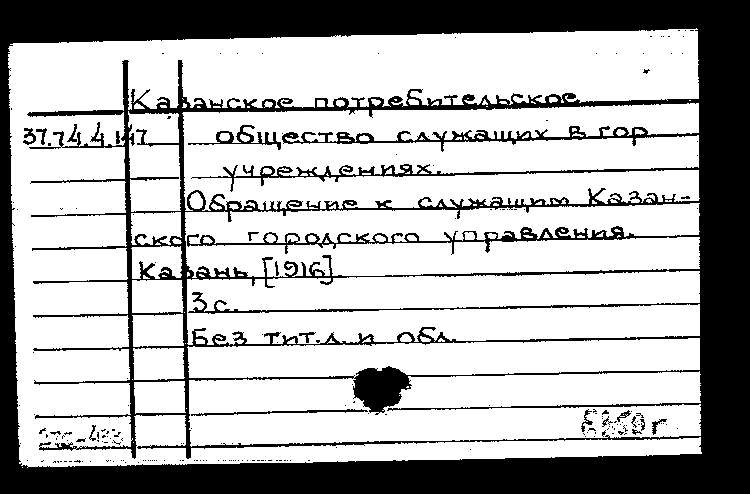 Казанское потребительское
37.74.4.147 общество служащих в гор
учреждениях.
Обращение к служащим Казан-
ского городского управления.
Казань, [1916].
3 с.
Без тит. л. и обл.